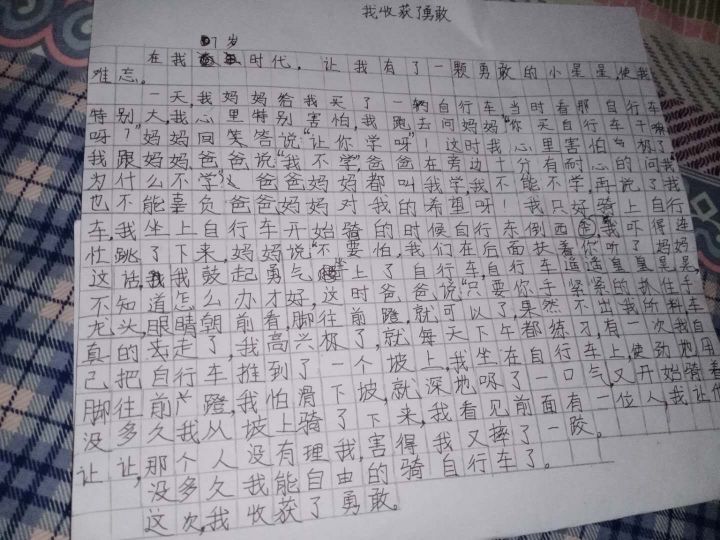 我收获了勇敢
7岁
在我时代，让我有了一颗勇敢的小星星，使我
难忘。
一天，我妈妈给我买了一辆自行车，当时看那自行车
特别大，我心里特别害怕，我跑去问妈妈“你买自行车干嘛
呀？”妈妈回笑答说“让你学呀”！这时我心里害怕极了
我跟妈妈爸爸说“我不学”，爸爸在旁边十分有耐心的问我“
为什么不学”？爸爸妈妈都叫我学，我不能不学，再说了我
也不能辜负爸爸妈妈对我的希望呀！我只好骑上自行
车，我坐上自行车开始骑的时候自行东倒西歪，我吓得连
忙跳了下来，妈妈说“不要怕，我们在后面扶着你”听了妈妈
这话，我鼓起勇气，坐上了自行车，自行车遥遥皇皇晃，
不知道怎么办才好，这时爸爸说“只要你手紧紧的抓住车
龙头，眼睛朝前看，脚往前蹬，就可以了，果然不出我所料车
真的走了，我高兴极了，就每天下午都练习，有一次我自
己把自行车推到了一个坡上，我坐在自行车上，使劲地用
脚往前蹬，我怕滑下坡，就深地吸了一口气，又开始骑着
没多久我从坡上骑了下来，我看见前面有一位人，我让他
让让，那个人没有理我，害得我又摔了一跤。
没多久我能自由的骑自行车了。
这次，我收获了勇敢。